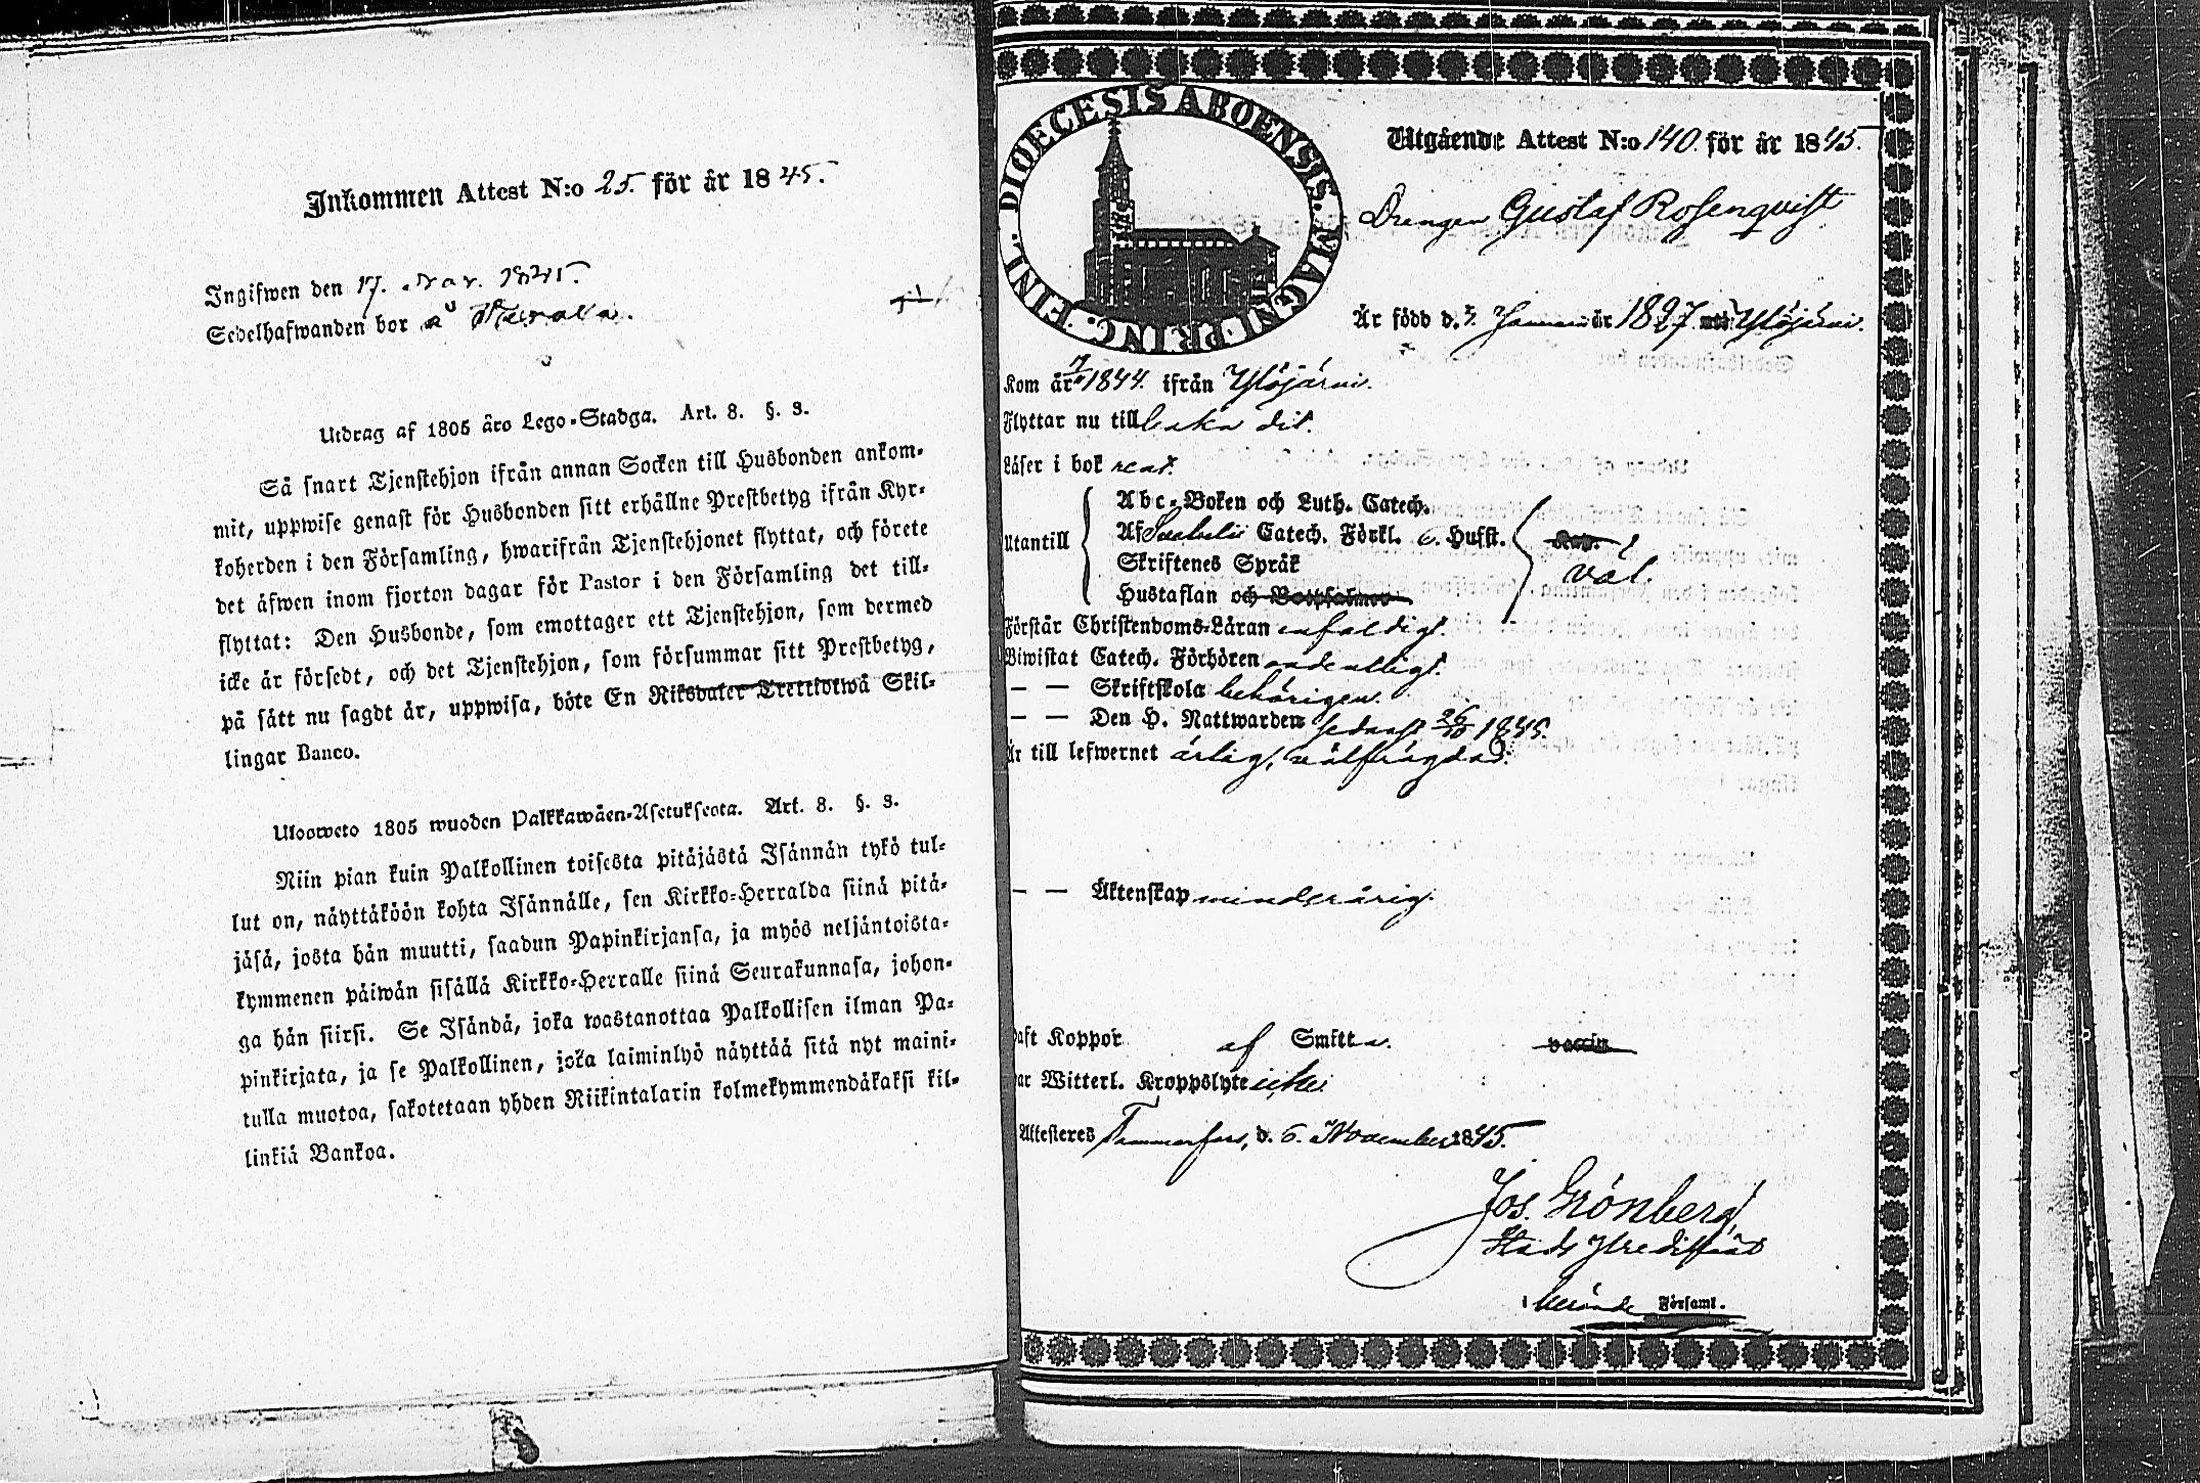 Inkommen Attest N:o 25. för år 1845.
Ingifwen den 17. Nov. 1845.
Sedelhafwanden bor å
Utdrag af 1805 åro Lego-Stadga. Art. 8. §. 3.
Så snart Tjenstehjon ifrån annan Socken till Husbonden ankom-
mit, uppwise genast för Husbonden sitt erhållne Prestbetyg ifrån Kyr-
koherden i den Församling, hwarifrån Tjenstehjonet flyttat, och förete
det äfwen inom fjorton dagar för Pastor i den Församling det till-
flyttat: Den Husbonde, som emottager ett Tjenstehjon, som dermed
icke är försedt, och det Tjenstehjon, som försummar sitt Prestbetyg,
på sätt nu sagdt är, uppwisa, böte En Riksdaler Trettiotwå Skil-
lingar Banco.
Uloosweto 1805 wuoden Palkkawäen-Asetuksesta. Art. 8. §. 3.
Niin pian kuin Palkollinen toisesta pitäjästä Isännän tykö tul-
lut on, näyttäköön kohta Isännälle, sen Kirkko-Herralda siinä pitä-
jäsä, josta hän muutti, saadun Papinkirjansa, ja myös neljäntoista-
kymmenen päiwän sisällä Kirkko-Herralle siinä Seurakunnasa, johon-
ga hän siirsi. Se Isändä, joka wastanottaa Palkollisen ilman Pa-
pinkirjata, ja se Palkollinen, joka laiminlyö näyttää sitä nyt maini-
tulla muotoa, sakotetaan yhden Riikintalarin kolmekymmendäkaksi kil-
linkiä Bankoa.
DIOECESIS ABOENSIS. MAGNI PRINC. FINL.
Utgående Attest N:o 140. för år 1845.
Drengen Gustaf Rosenqvist
Är född d. Januari år 1827 Ylöjärvi.
Kom år 1844. ifrån Ylöjärvi.
Flyttar nu tillbaka dit.
Läser i bok rent.
Utantill
Abc-Boken och Luth. Catech.
Af Svebelii Catech. Förkl. o. Husst.
Skriftenes Språk
Hustaflan och Botpsalmer
väl.
Förstår Christendoms-Läran enfaldigt.
Biwistat Catech. Förhören ordentligt.
— — Skriftskola behörigen.
— — Den H. Nattwarden sednast 26/10 1845.
Är till lefwernet ärlig, välfrägdad.
— — Äktenskap minderårig.
Haft Koppor af Smitta. vaccin
Har Witterl. Kroppslyte icke
Attesteres Tammerfors, d. 6. November 1845.
Jos. Grönberg
Församl.